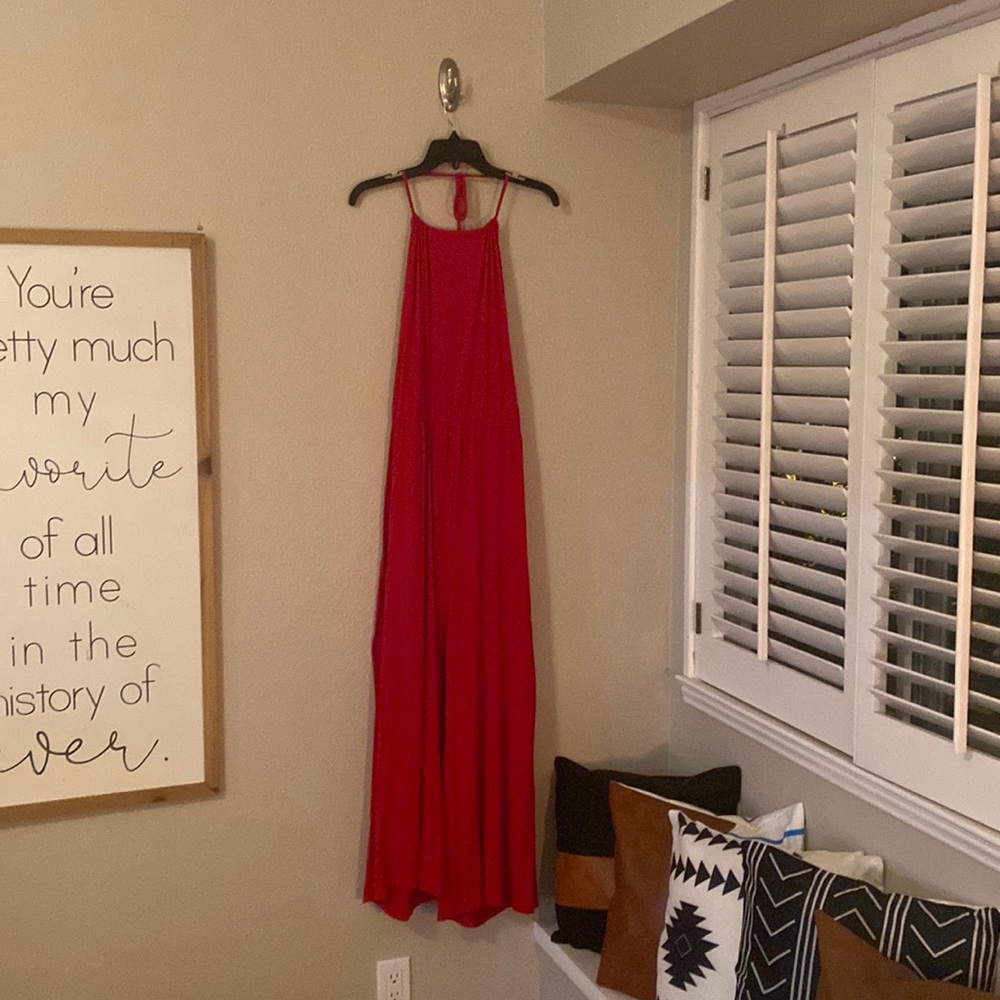 You're
etty much
my
vorite
of all
time
in the
history of
ever.